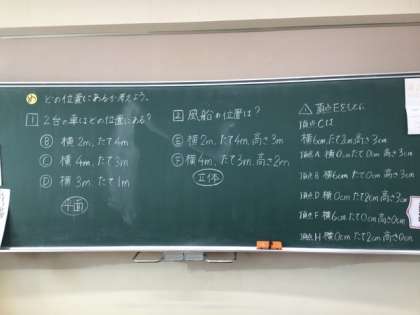 め どの位置にあるか考えよう。
1 2台の車はどの位置にある?
B 横2m、たて4m
C 横4m、たて3m
D 横3m、たて1m
平面
2 風船の位置は?
E 横2m、たて4m、高さ3m
F 横4m、たて3m、高さ2m
立体
頂点Eをもとに
頂点Cは
横6cm、たて2cm、高さ3cm
頂点A 横0cm たて0cm 高さ3cm
頂点B 横6cm たて0cm 高さ3cm
頂点D 横0cm たて2cm 高さ3cm
頂点F 横6cm、たて0cm 高さ0cm
頂点H 横0cm たて2cm 高さ0cm